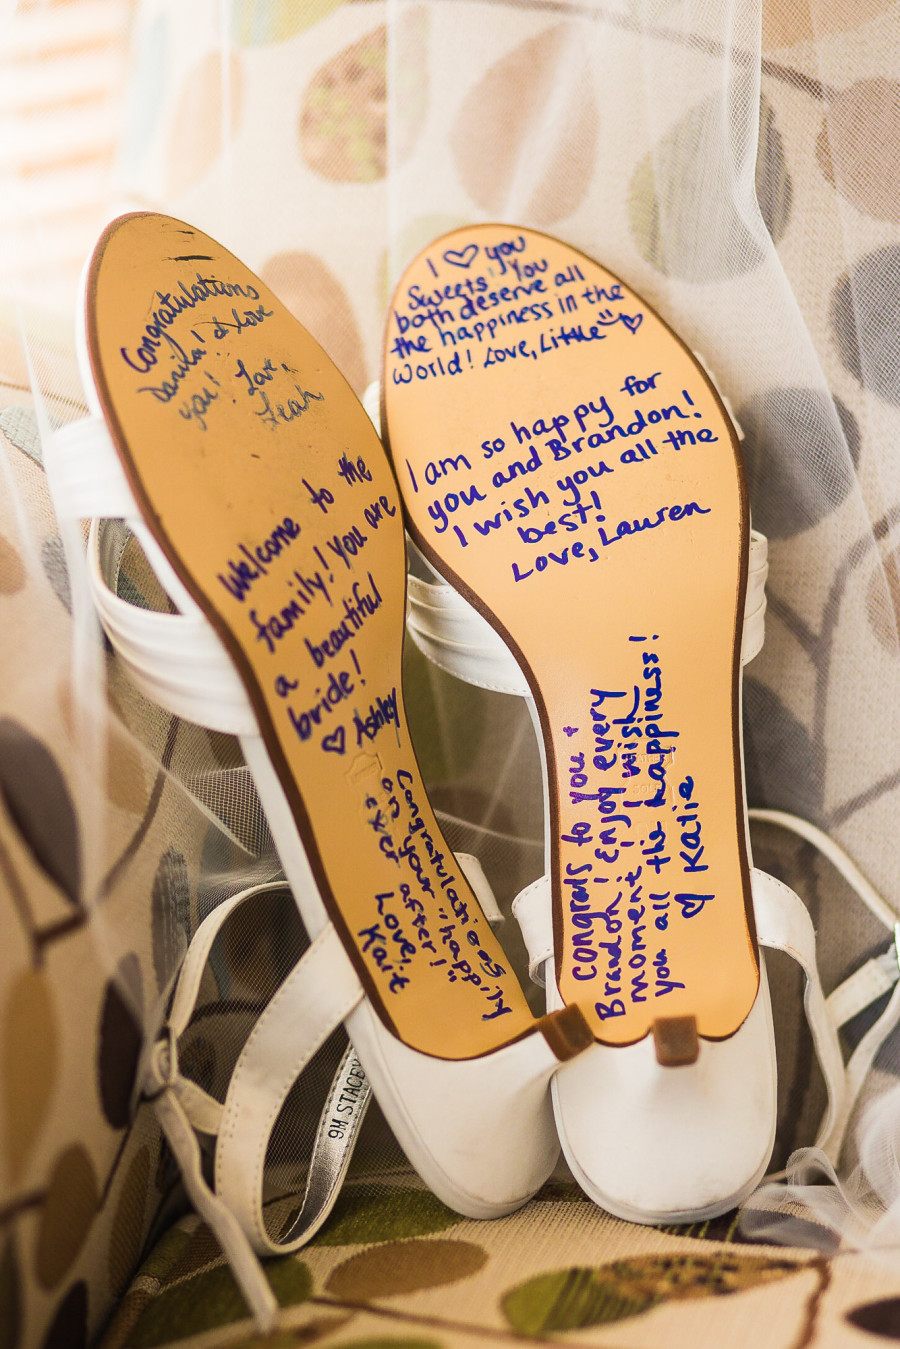 Congratulations
Danika! I Love
you! Love,
Leah
Welcome to the
family! You are
a beautiful
bride!
♡ Ashley
Congratulations
on your "happily
ever after!"
Love,
Kait
I ♡ you
Sweets! You
both deserve all
the happiness in the
World! Love, Little ♡
I am so happy for
you and Brandon!
I wish you all the
best!
Love, Lauren
congrads to you +
Brandon! Enjoy every
moment, I wish
you all the happiness!
♡ Katie
9M STACEY